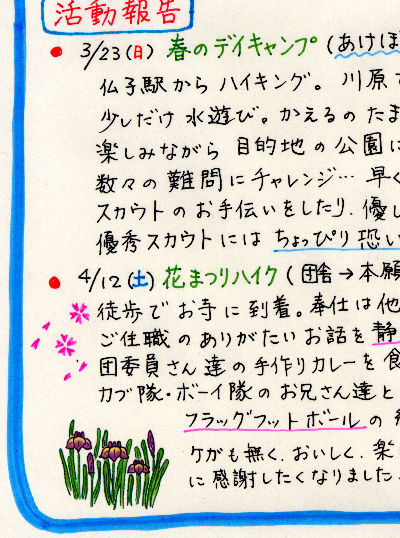 活動報告
● 3/23(日) 春のデイキャンプ (あけほ
仏子駅から ハイキング。 川原
少しだけ 水遊び。かえるの たま
楽しみながら 目的地 の 公園に
数々の 難問に チャレンジ… 早く
スカウトの お手伝いをしたり、優し
優秀スカウトには ちょっぴり 恐い
● 4/12(土) 花まつりハイク (団舎→本願
徒歩で お寺に 到着。奉仕は 他
ご住職の ありがたい お話を 静
団委員さん 達の 手作り カレーを 食
カブ隊・ボーイ隊の お兄さん達と
フラッグフットボールの
ケがも 無く、おいしく、楽し
に 感謝したくなりました。